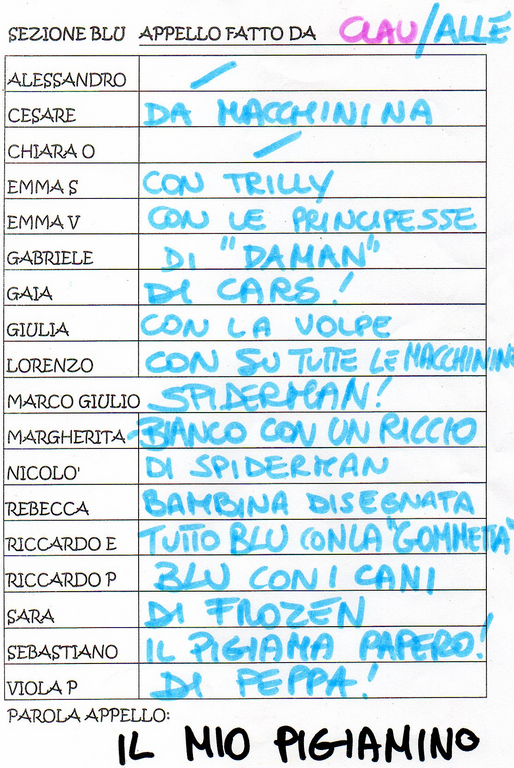 SEZIONE BLU APPELLO FATTO DA CLAU/ALLE
ALESSANDRO /
CESARE DA MACCHININA
CHIARA O /
EMMA S CON TRILLY
EMMA V CON LE PRINCIPESSE
GABRIELE DI "DAMAN"
GAIA DI CARS!
GIULIA CON LA VOLPE
LORENZO CON SU TUTTE LE MACCHININE
MARCO GIULIO SPIDERMAN!
MARGHERITA BIANCO CON UN RICCIO
NICOLO' DI SPIDERMAN
REBECCA BAMBINA DISEGNATA
RICCARDO E TUTTO BLU CON LA "GOMMETTA"
RICCARDO P BLU CON I CANI
SARA DI FROZEN
SEBASTIANO IL PIGIAMA PAPERO!
VIOLA P DI PEPPA!
PAROLA APPELLO:
IL MIO PIGIAMINO